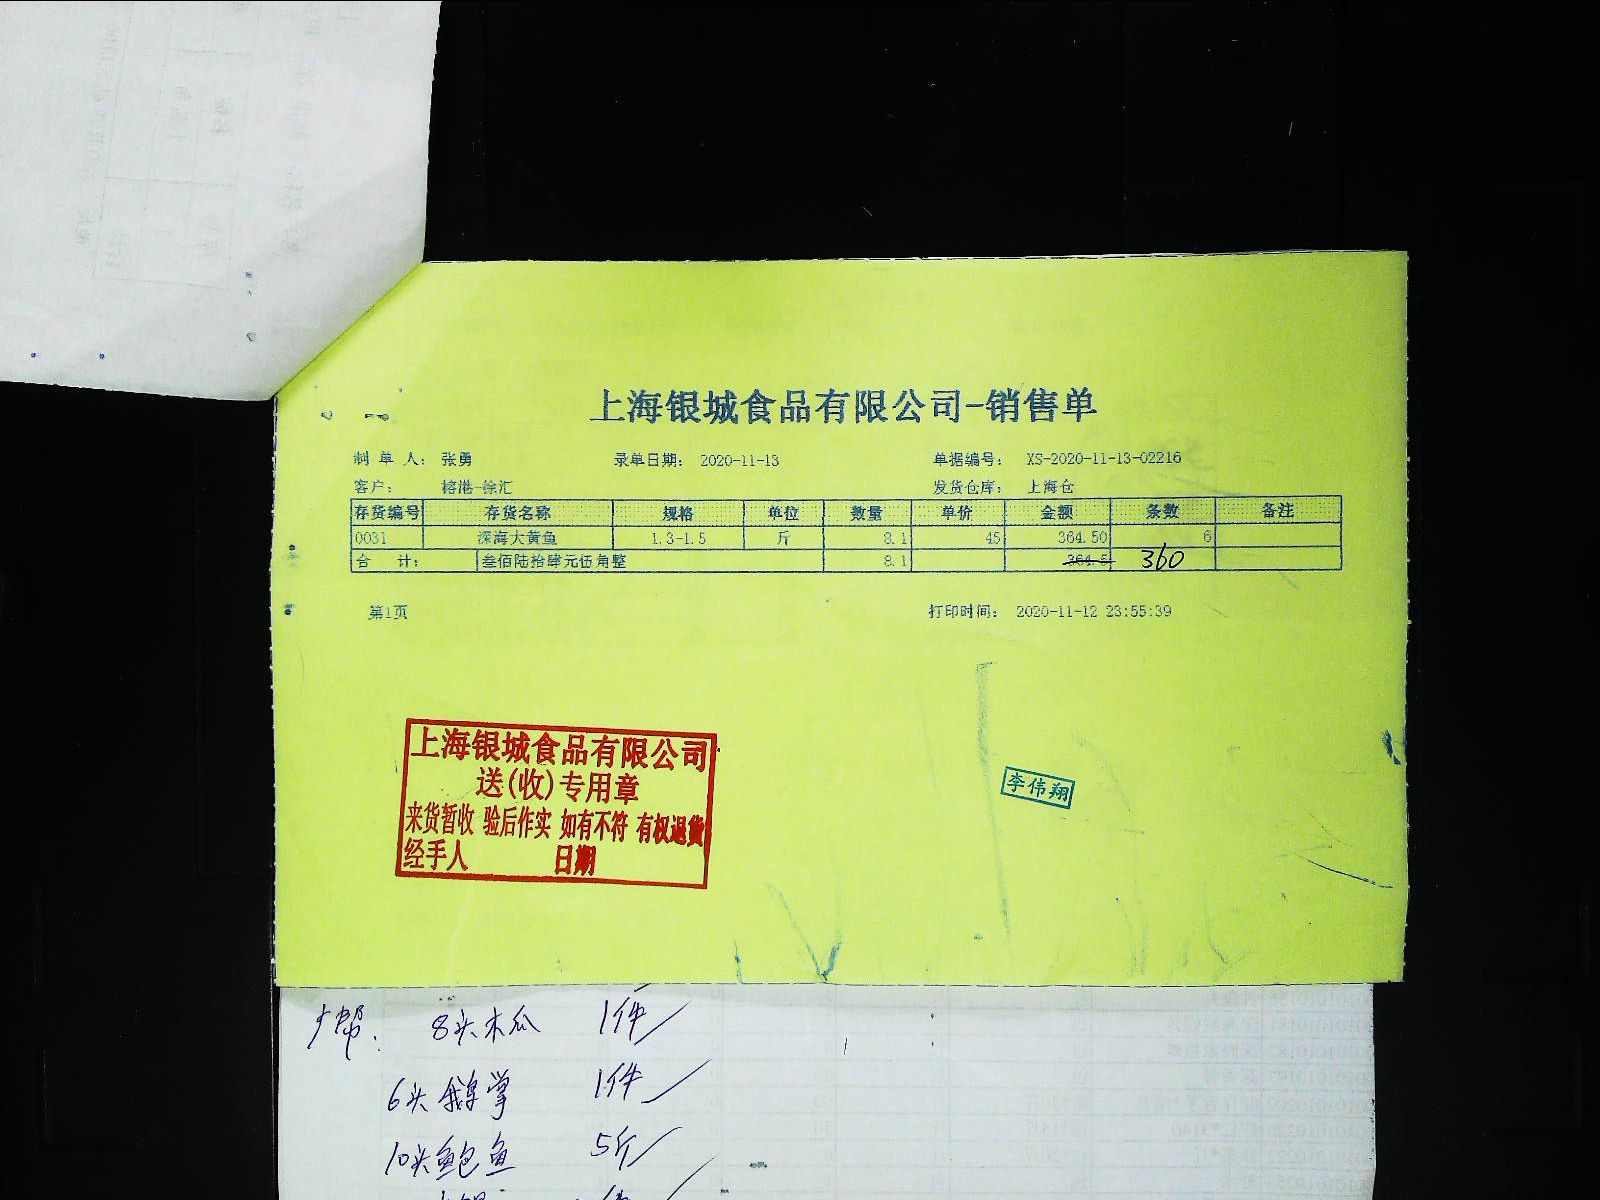 上海银城食品有限公司-销售单
制单人: 张勇 录单日期: 2020-11-13 单据编号: XS-2020-11-13-02216
客户: 榕港-徐汇 发货仓库: 上海仓
存货编号 存货名称 规格 单位 数量 单价 金额 条数 备注
0031 深海大黄鱼 1.3-1.5 斤 8.1 45 364.50 6
合计: 叁佰陆拾肆元伍角整 8.1 364.5 360
第1页 打印时间: 2020-11-12 23:55:39
上海银城食品有限公司
送(收)专用章
来货暂收 验后作实 如有不符 有权退货
经手人 日期
李伟翔
8头木瓜 1件
6头鹅掌 1件
10头鲍鱼 5斤